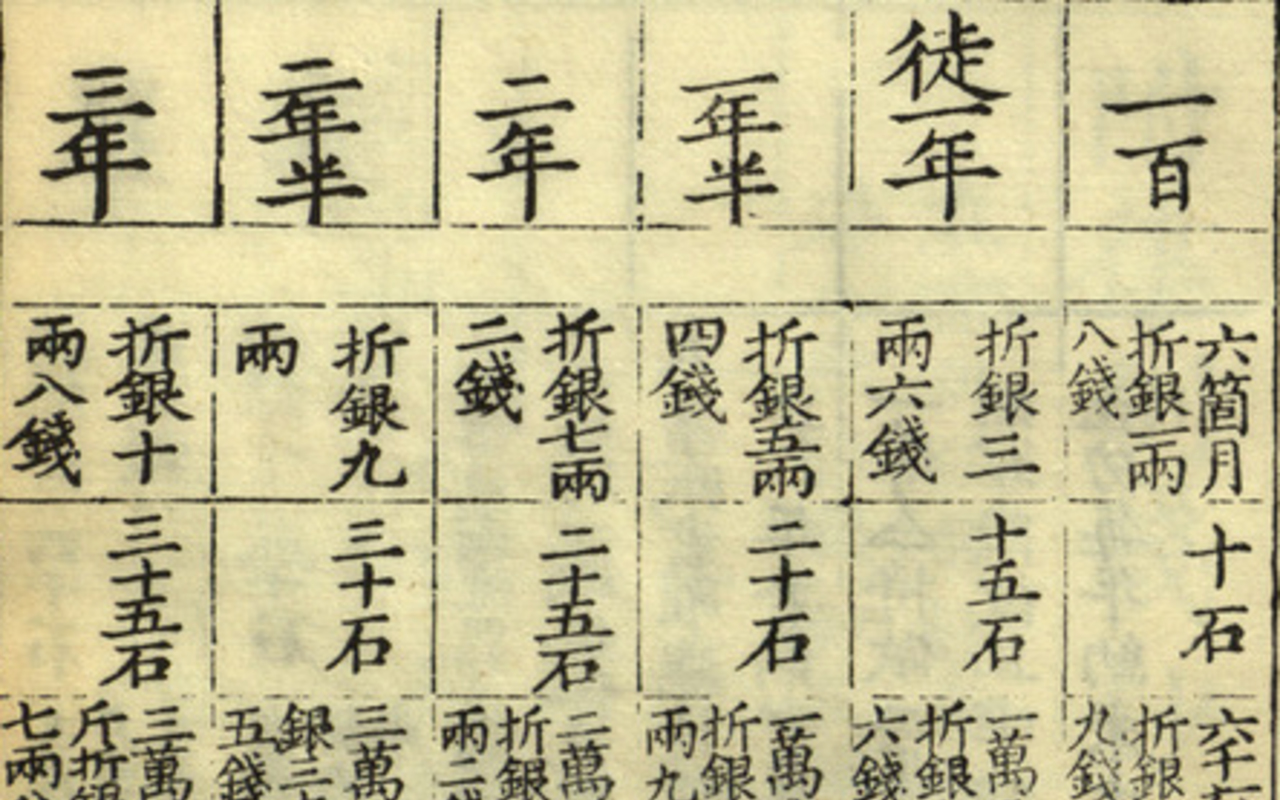 一百
徒一年
一年半
二年
二年半
三年
六箇月
折銀一兩
八錢
折銀三
兩六錢
折銀五兩
四錢
折銀七兩
二錢
折銀九
兩
折銀十
兩八錢
十石
十五石
二十石
二十五石
三十石
三十五石
六千
折銀
九錢
一萬
折銀
六錢
一萬
折銀
兩九
二萬
折銀
兩二
三萬
銀三
五錢
三萬
斤折銀
七兩